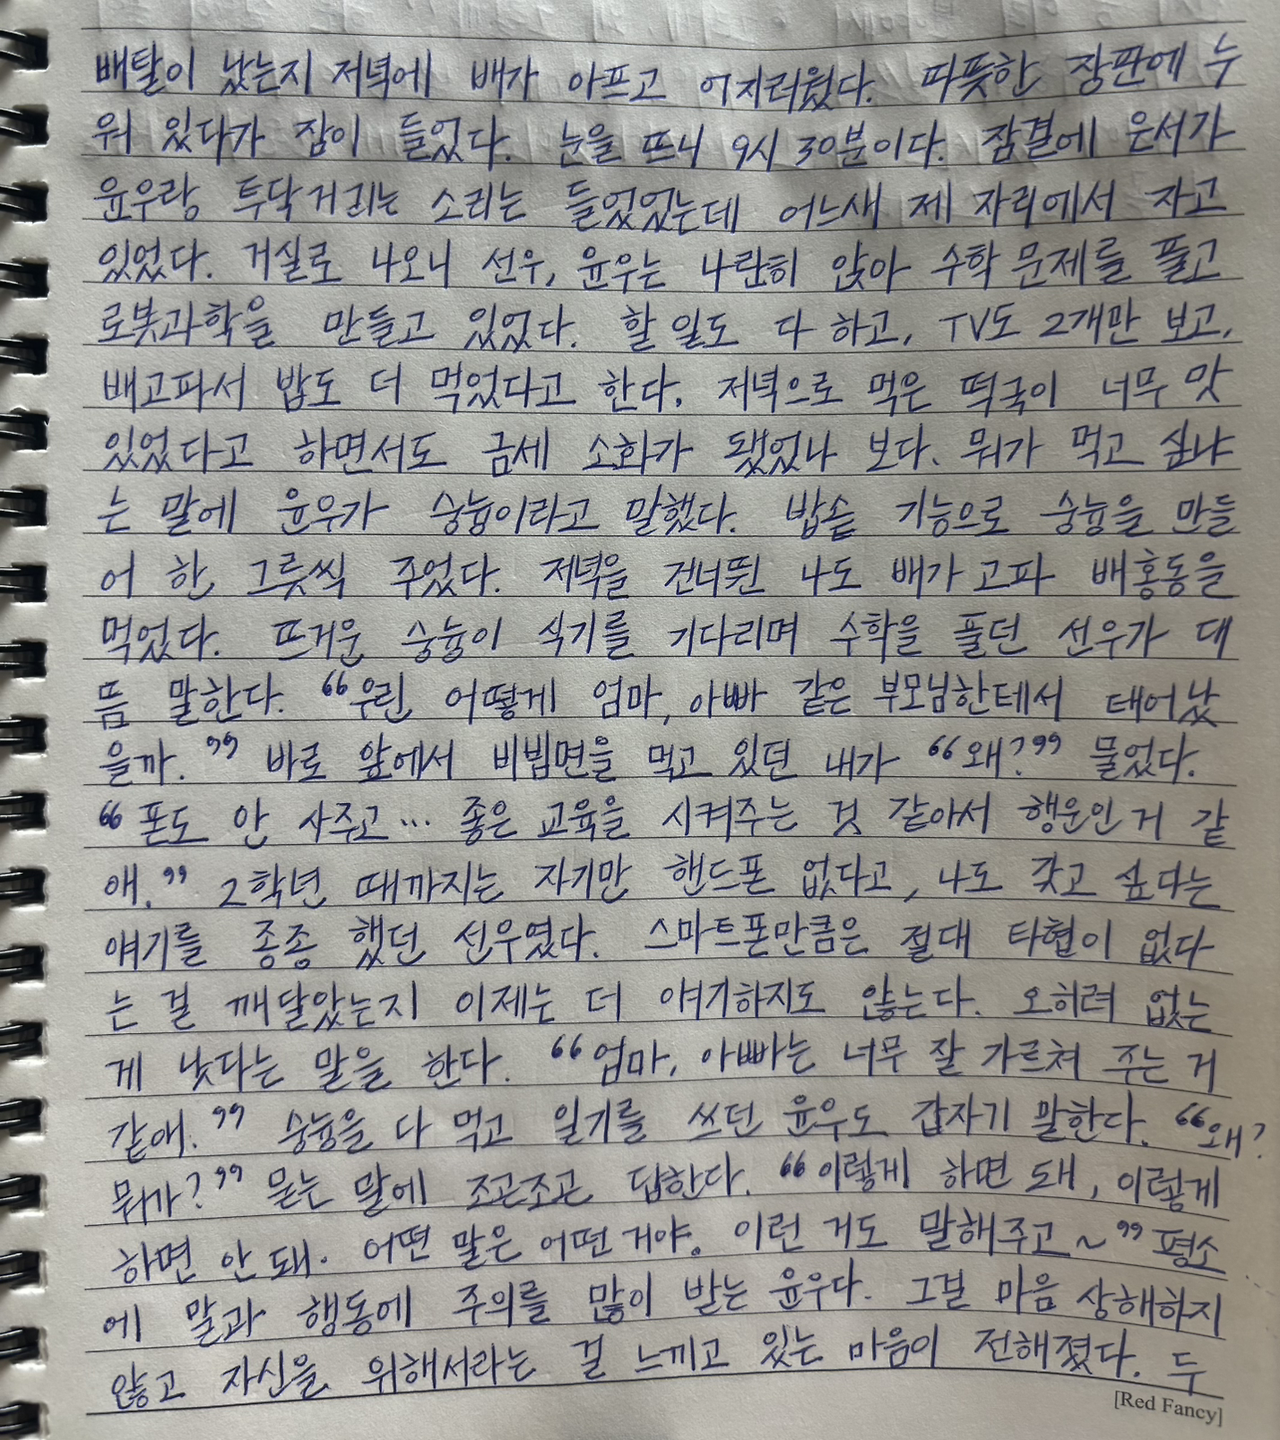 배탈이 났는지 저녁에 배가 아프고 어지러웠다. 따뜻한 장판에 누
워 있다가 잠이 들었다. 눈을 뜨니 9시 30분이다. 잠결에 은서가
윤우랑 투닥거리는 소리는 들었었는데 어느새 제 자리에서 자고
있었다. 거실로 나오니 선우, 윤우는 나란히 앉아 수학 문제를 풀고
로봇과학을 만들고 있었다. 할 일도 다 하고, TV도 2개만 보고,
배고파서 밥도 더 먹었다고 한다. 저녁으로 먹은 떡국이 너무 맛
있었다고 하면서도 금세 소화가 됐었나 보다. 뭐가 먹고 싶냐
는 말에 윤우가 숭늉이라고 말했다. 밥솥 기능으로 숭늉을 만들
어 한 그릇씩 주었다. 저녁을 건너뛴 나도 배가 고파 배홍동을
먹었다. 뜨거운 숭늉이 식기를 기다리며 수학을 풀던 선우가 대
뜸 말한다. “우린 어떻게 엄마, 아빠 같은 부모님한테서 태어났
을까.” 바로 앞에서 비빔면을 먹고 있던 내가 “왜?” 물었다.
“폰도 안 사주고… 좋은 교육을 시켜주는 것 같아서 행운인 거 같
애.” 2학년 때까지는 자기만 핸드폰 없다고, 나도 갖고 싶다는
얘기를 종종 했던 선우였다. 스마트폰만큼은 절대 타협이 없다
는 걸 깨달았는지 이제는 더 얘기하지도 않는다. 오히려 없는
게 낫다는 말을 한다. “엄마, 아빠는 너무 잘 가르쳐 주는 거
같애.” 숭늉을 다 먹고 일기를 쓰던 윤우도 갑자기 말한다. “왜?
뭐가?” 묻는 말에 조곤조곤 답한다. “이렇게 하면 돼, 이렇게
하면 안 돼. 어떤 말은 어떤 거야. 이런 거도 말해주고~” 평소
에 말과 행동에 주의를 많이 받는 윤우다. 그걸 마음 상해하지
않고 자신을 위해서라는 걸 느끼고 있는 마음이 전해졌다. 두
[Red Fancy]